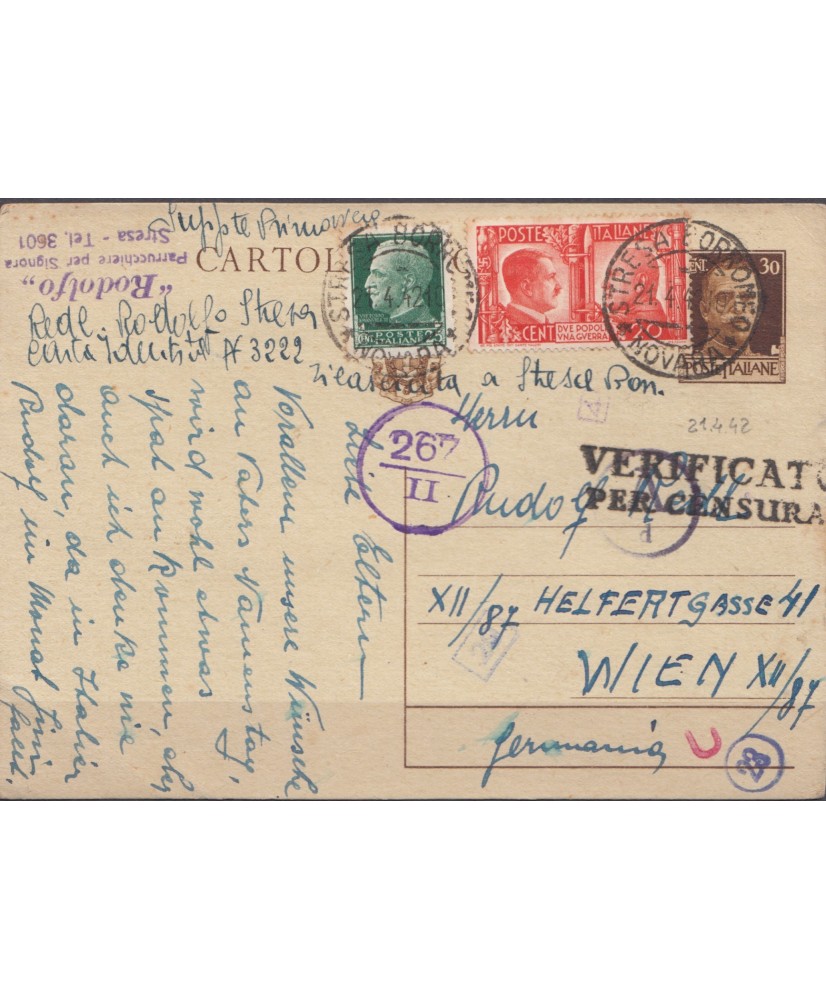 "Rodolfo"
Parrucchiere per Signora
Stresa - Tel. 3601
CARTOL
Redl. Rodolfo Stresa
Carta N 3222
rilasciata a Stresa Bor.
POSTE ITALIANE
POSTE ITALIANE
CENT 20
DVE POPOLI
VNA GVERRA
CENT. 30
POSTE ITALIANE
STRESA BORROMEO
21.4.42
NOVARA
STRESA BORROMEO
21.4
NOVARA
21.4.42
267
II
VERIFICATO
PER CENSURA
d
Herrn
Rudolf
XII/87 HELFERTGASSE 41
WIEN XII/87
Germania
23
Liebe Eltern
Vorallem unsere Wünsche
zu Vaters Namenstag,
wird wohl etwas
spät ankommen, aber
auch ich denke nie
daran, da in Italien
Rudolf im Monat Juni
faellt.